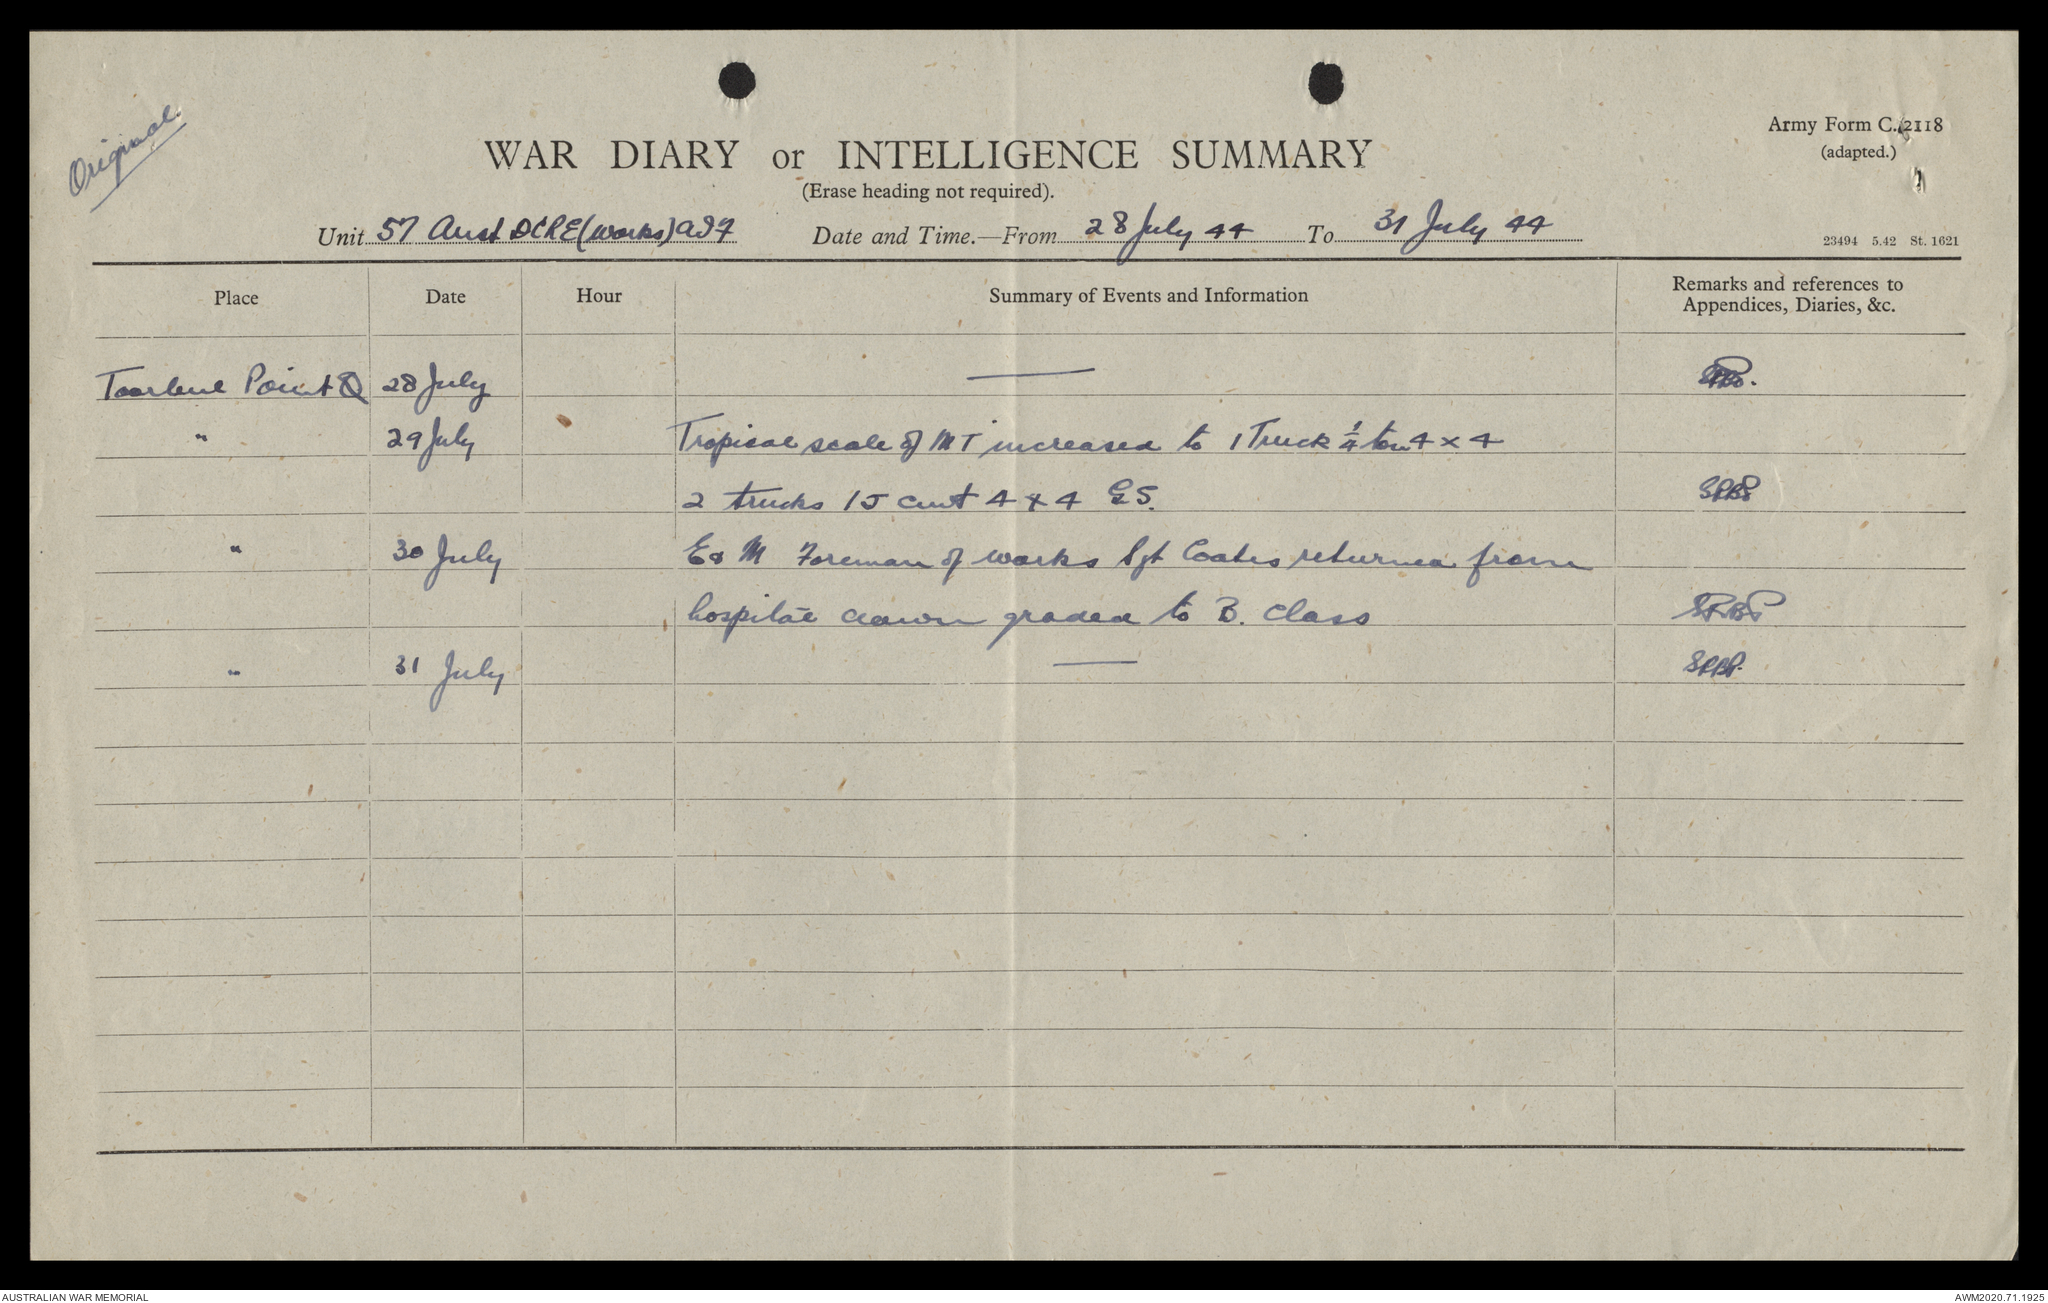 Original.
Army Form C. 2118
(adapted.)
WAR DIARY or INTELLIGENCE SUMMARY
(Erase heading not required).
Unit 57 Aust DCRE (Works) AIF Date and Time.—From 28 July 44 To 31 July 44
23494 5.42 St. 1621
Place Date Hour Summary of Events and Information Remarks and references to
Appendices, Diaries, &c.
Point Q 28 July —
" 29 July Tropical scale of MT increased to 1 Truck ¼ ton 4 x 4
2 trucks 15 cwt 4 x 4 GS. SRBP
" 30 July E & M Foreman of works Sgt Coates returned from
hospital down graded to B. Class SRBP
" 31 July — SRBP.
AUSTRALIAN WAR MEMORIAL AWM2020.71.1925